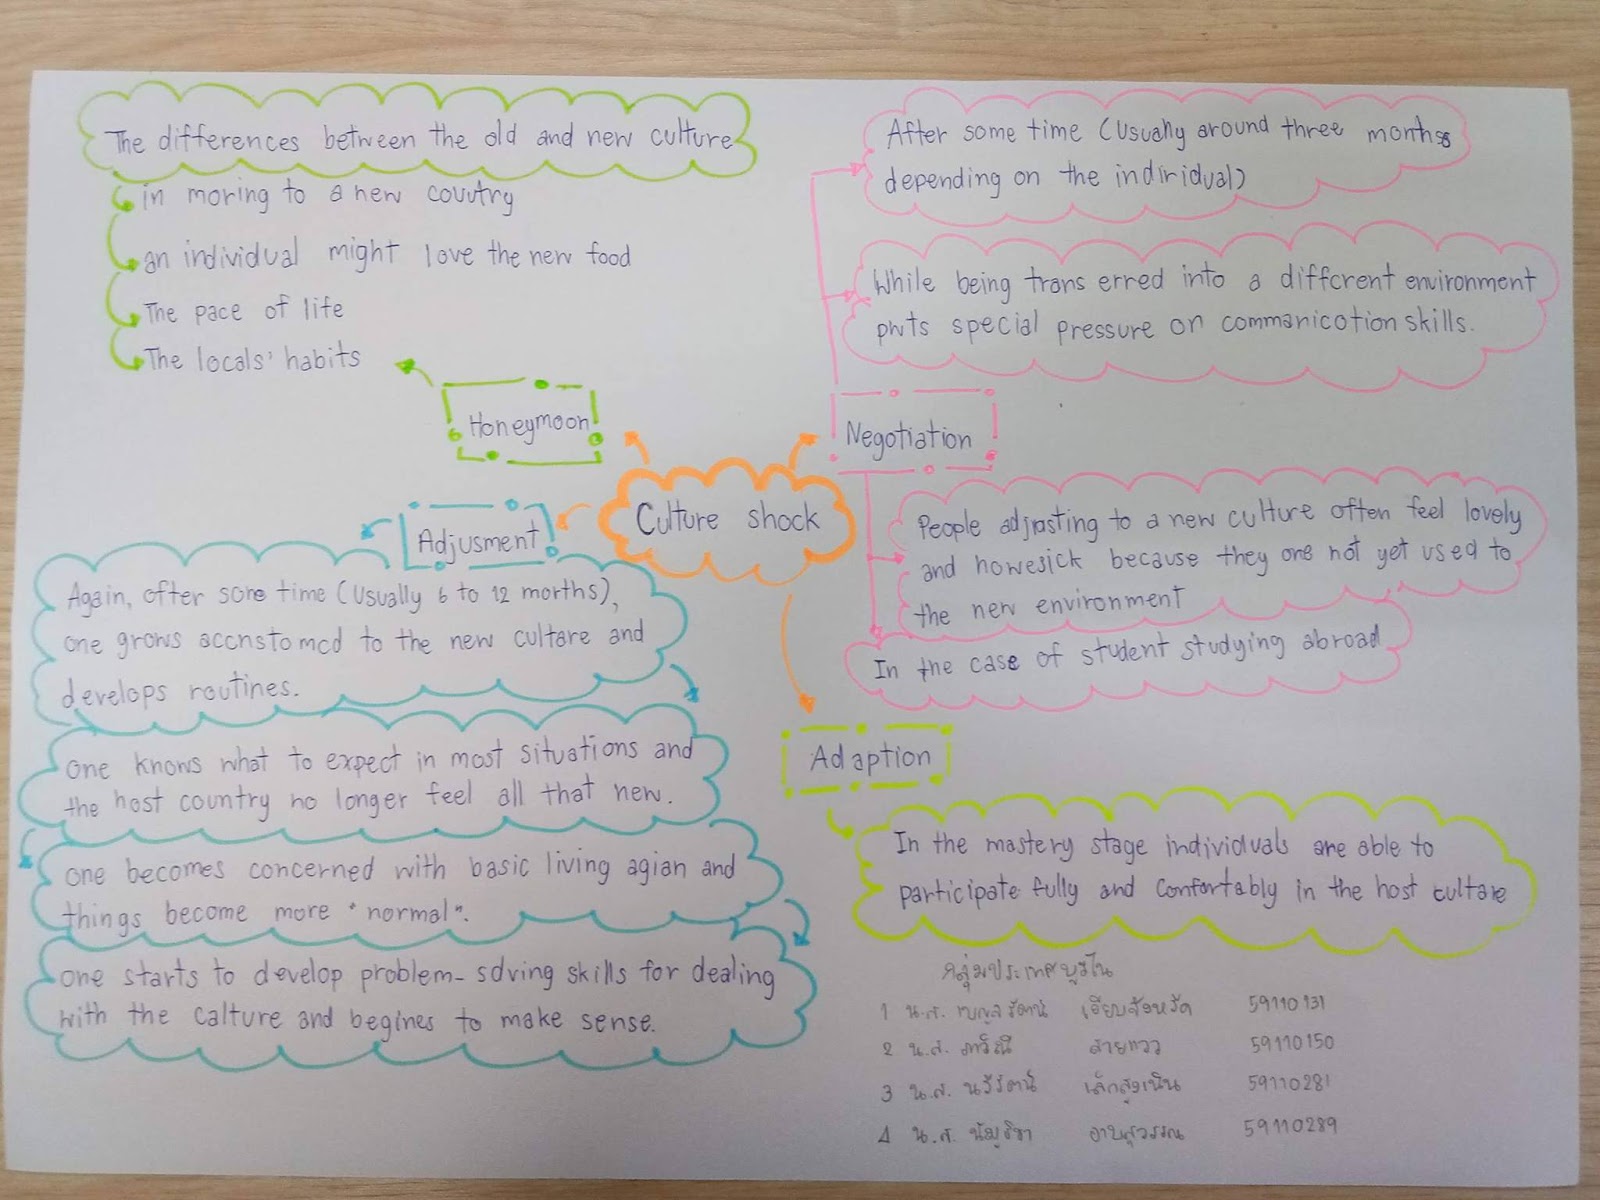 The differences between the old and new culture
in moring to a new coutry
an individual might love the new food
The pace of life
The locals' habits
Honeymoon
After some time (Usually around three months
depending on the indiridual)
While being trans erred into a different environment
pwts special pressure on commanicotion skills.
Negotiation
Culture shock
People adjrasting to a new culture often feel lovely
and howesick because they one not yet used to
the new environment
In the case of student studying abroad
Adjusment
Again, ofter some time (Usually 6 to 12 morths),
one grows accnstomed to the new cultare and
develops routines.
one knows what to expect in most situations and
the host country no longer feel all that new.
one becomes concerned with basic living agian and
things become more "normal".
one starts to develop problem-solving skills for dealing
with the calture and begines to make sense.
Adaption
In the mastery stage individuals are able to
participate fully and confortably in the host cultare
กลุ่มประเทศบูรไน
1 น.ส. เบญลรัตน์ 59110131
2 น.ส. สายแวว 59110150
3 น.ส. นรีรัตน์ เล็กสูงเนิน 59110281
4 น.ส. อาบสุวรรณ 59110289